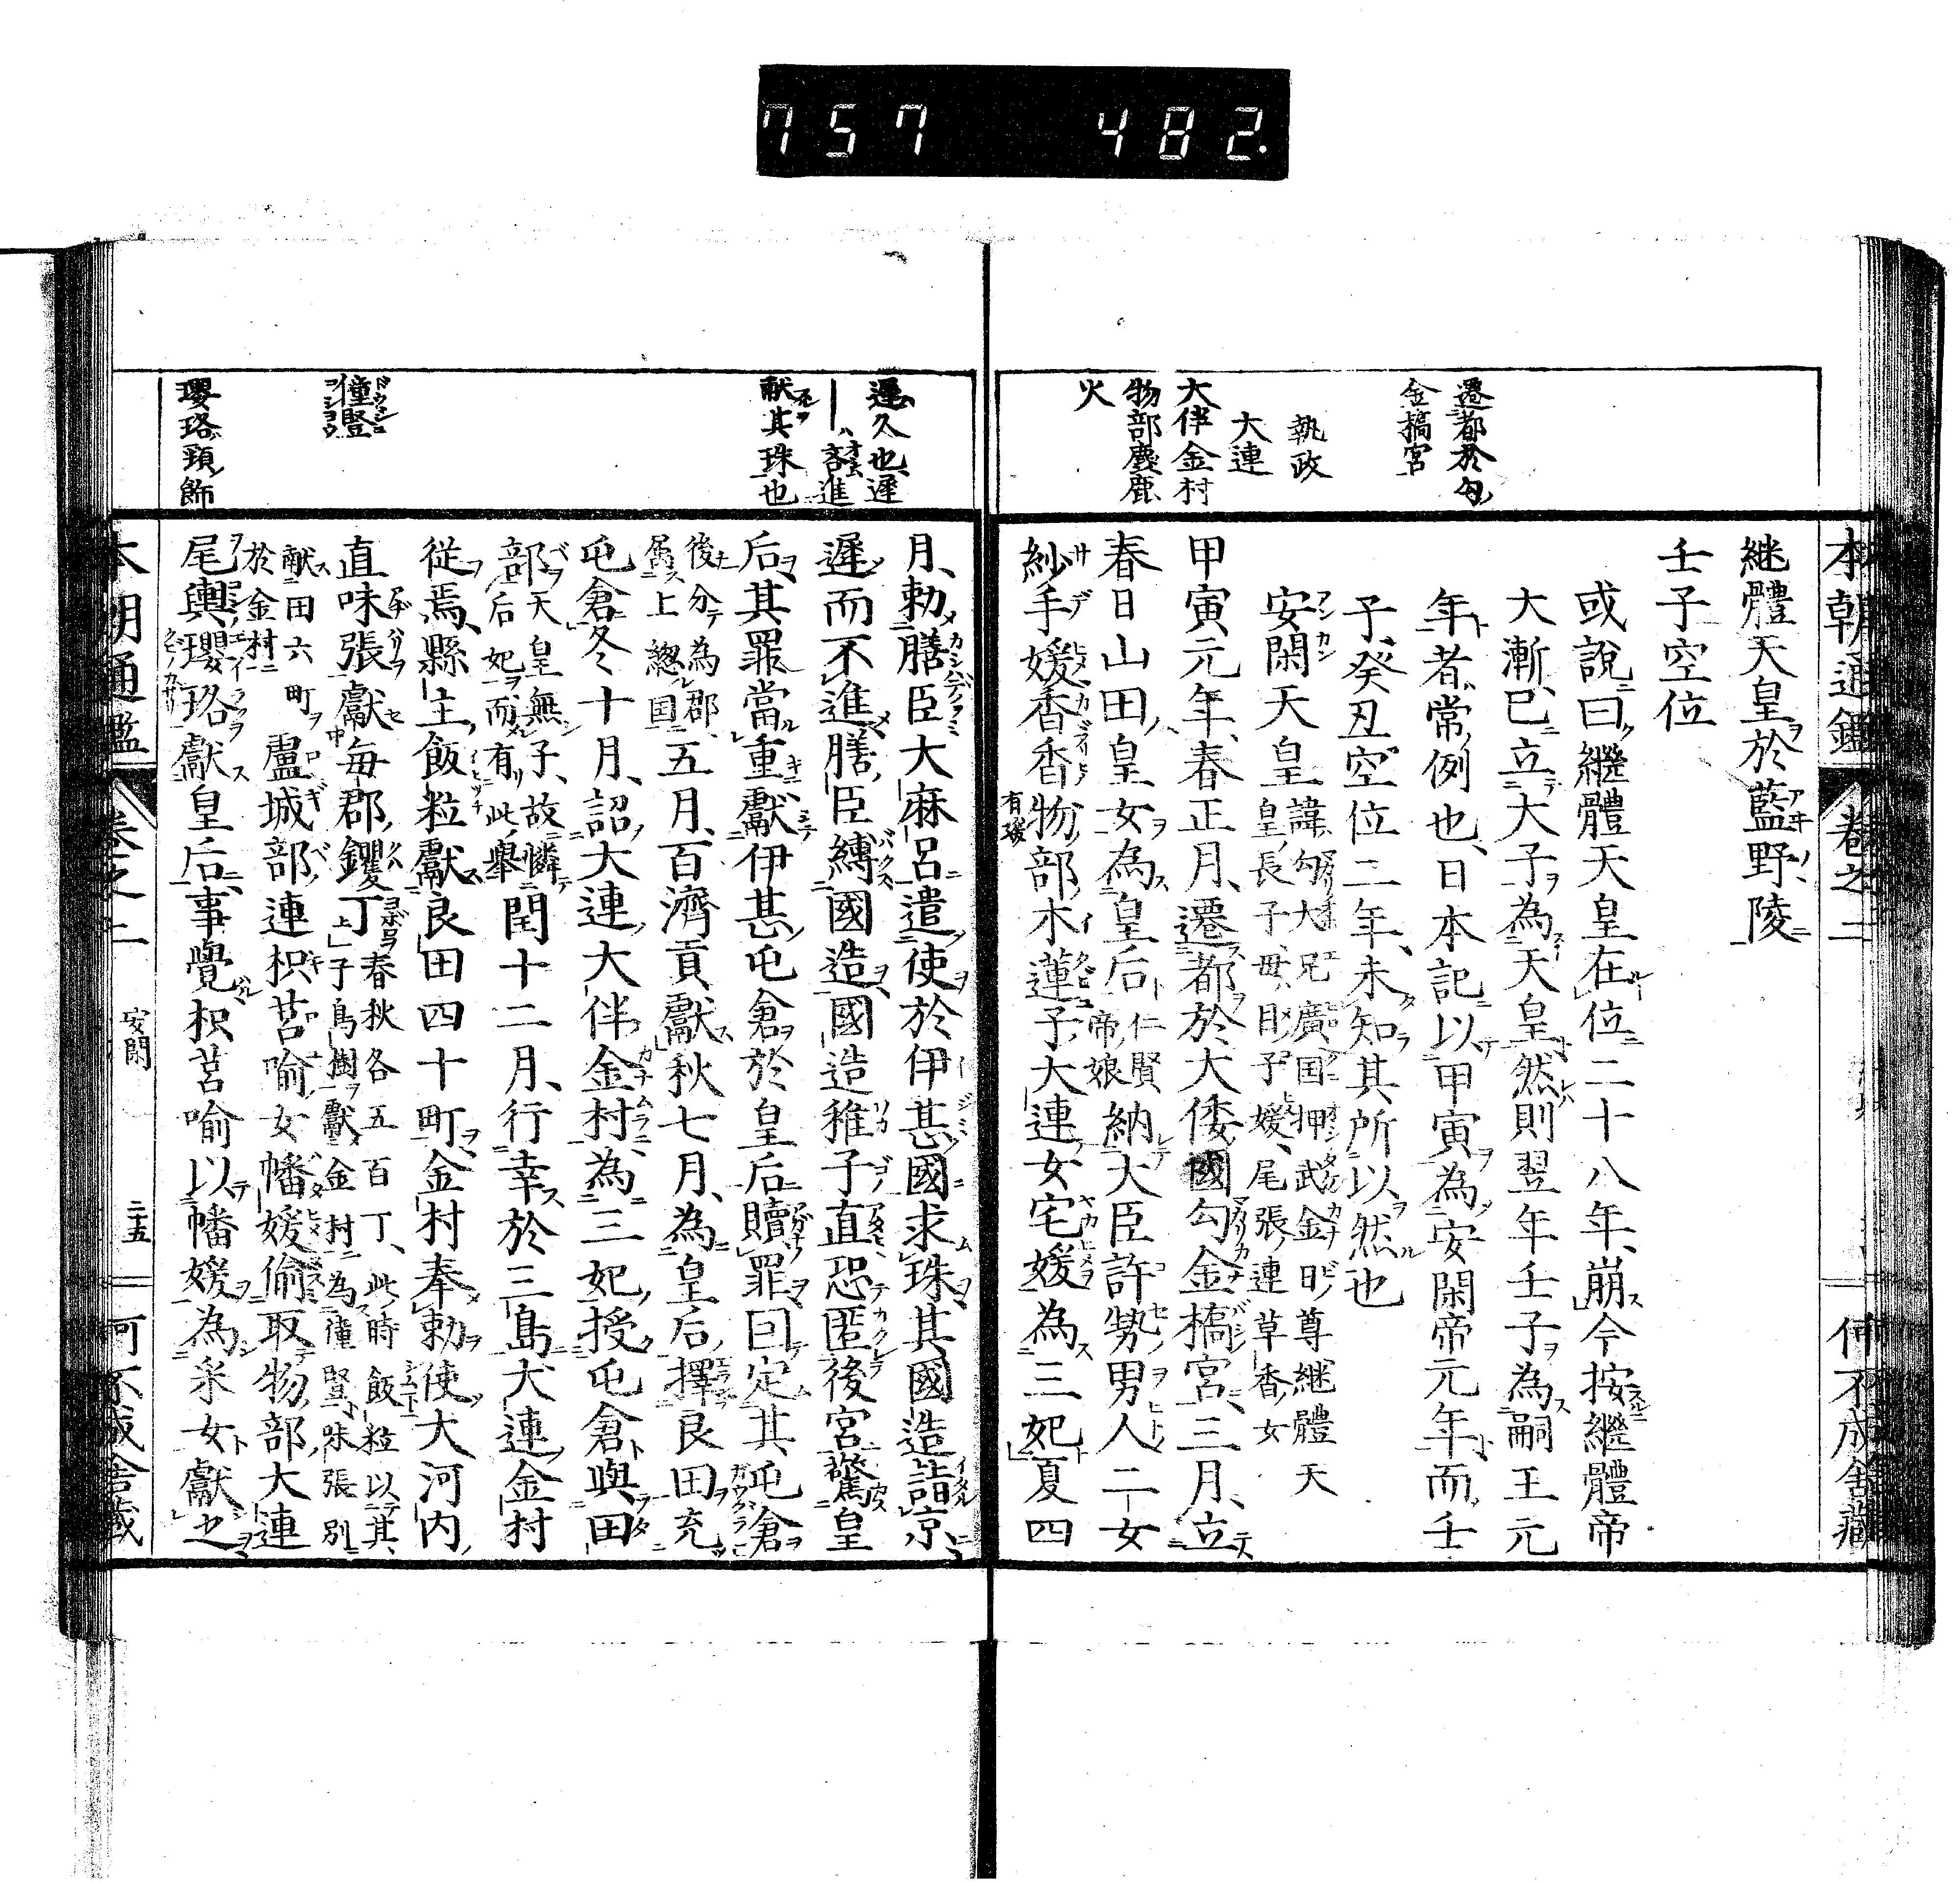 757 482.
本朝通鑑 卷之二 何不成舍藏
遷都於勾
金橋宮
執政
大連
大伴金村
物部麁鹿
火
継體天皇於藍野陵
壬子空位
或說曰繼體天皇在位二十八年崩今按繼體帝
大漸已立大子為天皇然則翌年壬子為嗣王元
年者常例也日本記以甲寅為安閑帝元年而壬
子癸丑空位二年未知其所以然也
安閑天皇諱勾大兄廣国押武金日尊継體天
皇長子母目子媛尾張連草香女
甲寅元年春正月遷都於大倭國勾金橋宮三月立
春日山田皇女為皇后仁賢
帝娘納大臣許勢男人二女
紗手媛香香有媛物部木蓮子大連女宅媛為三妃夏四
遲久也遲
｜ハ吝進
献其珠也
僮竪
瓔珞頚飾
月勅膳臣大麻呂遣使於伊甚國求珠其國造詣京
遲而不進膳臣縛國造國造稚子直恐匿後宮驚皇
后其罪當重獻伊甚屯倉於皇后贖罪囙定其屯倉
後分為郡
属上緫国五月百濟貢獻秋七月為皇后擇良田充
屯倉冬十月詔大連大伴金村為三妃授屯倉與田
部天皇無子故憐
后妃而有此舉閏十二月行幸於三島大連金村
從焉縣主飯粒獻良田四十町金村奉勅使大河内
直味張獻每郡钁丁春秋各五百丁此時飯粒以其
子鳥樹獻金村為僮竪味張別
献田六町
於金村盧城部連枳莒喻女幡媛偷取物部大連
尾輿瓔珞獻皇后事覺枳莒喻以幡媛為采女獻之
本朝通鑑 卷之二 安閑 二五 何不成舍藏